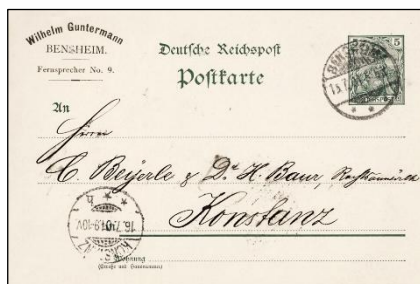 Wilhelm Guntermann
BENSHEIM.
Fernsprecher No. 9.
Deutsche Reichspost
Postkarte
5
An
Herrn
C. Beyerle & Dr. H. Baur, Rechtsanwälte
Konstanz
BENSHEIM
16.7.01.9-10V.
KONSTANZ
Wohnung
(Straße und Hausnummer)